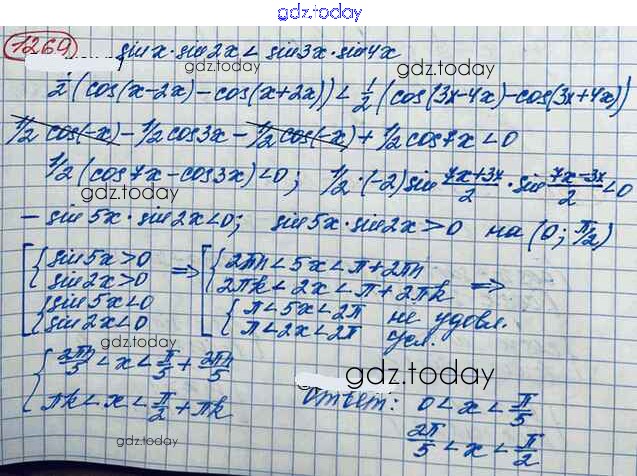 gdz.today
1269 sin x · sin 2x < sin 3x · sin 4x
gdz.today
1/2 (cos(x-2x) - cos(x+2x)) < 1/2 (cos(3x-4x) - cos(3x+4x))
1/2 cos(-x) - 1/2 cos 3x - 1/2 cos(-x) + 1/2 cos 7x < 0
1/2 (cos 7x - cos 3x) < 0; 1/2 · (-2) sin (7x+3x)/2 · sin (7x-3x)/2 < 0
gdz.today
- sin 5x · sin 2x < 0; sin 5x · sin 2x > 0 на (0; π/2)
[ { sin 5x > 0 => [ { 2πn < 5x < π + 2πn
{ sin 2x > 0 { 2πk < 2x < π + 2πk =>
gdz.today
{ sin 5x < 0 { π < 5x < 2π не удовл.
{ sin 2x < 0 { π < 2x < 2π усл.
gdz.today
{ 2πn/5 < x < π/5 + 2πn/5
gdz.today
{ πk < x < π/2 + πk
Ответ: 0 < x < π/5
2π/5 < x < π/2
gdz.today